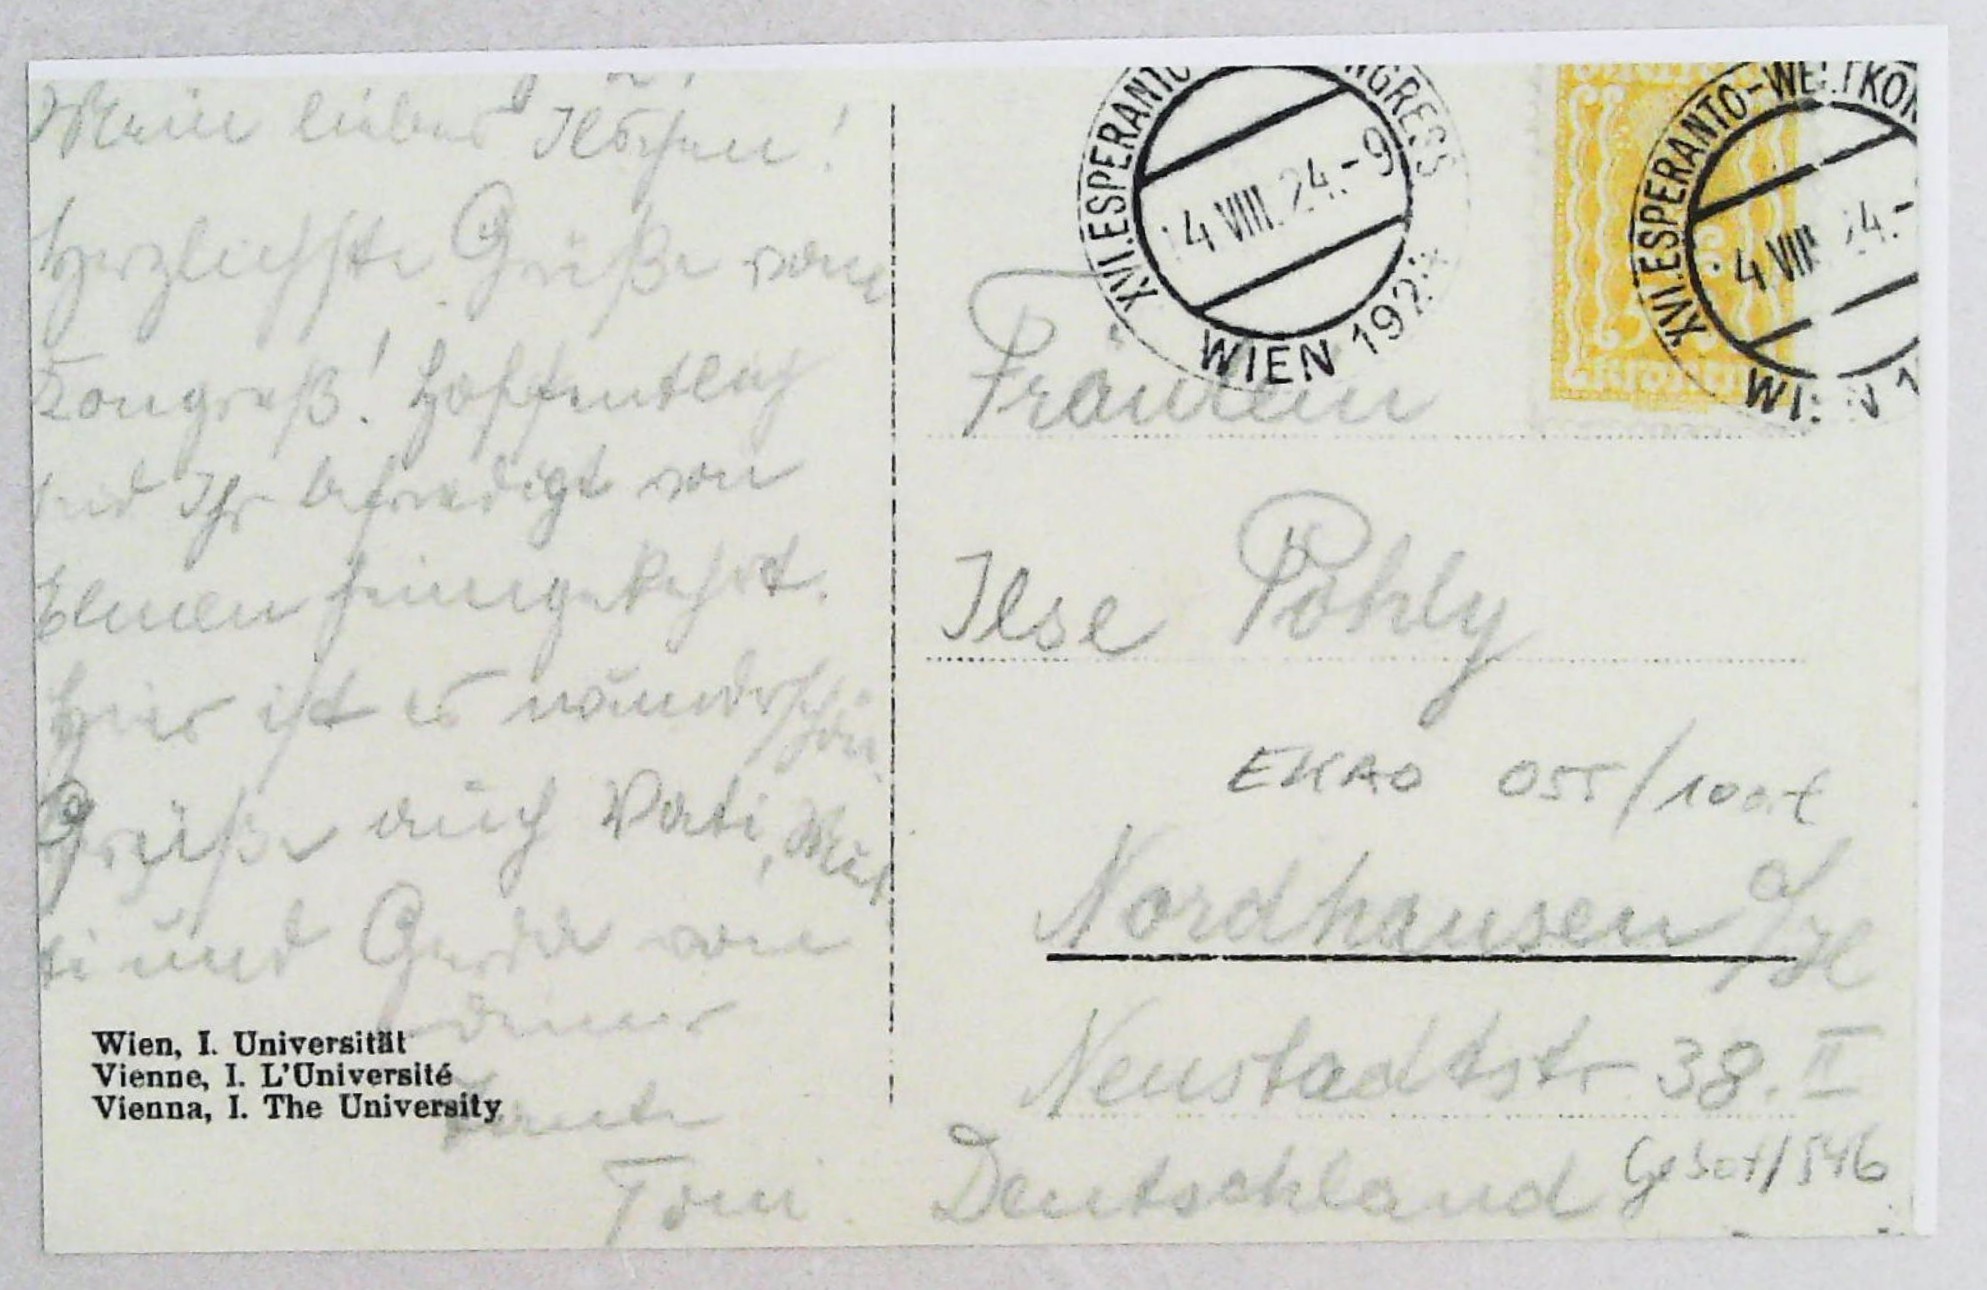 Mein liebes Ilschen!
Herzlichste Grüße vom
Kongreß! Hoffentlich
seid Ihr befriedigt von
Elmen heimgekehrt.
Hier ist es wunderschön.
Grüße auch Vati, Mut
ti und Gerda von
deiner
Tante
Toni.
Wien, I. Universität
Vienne, I. L'Université
Vienna, I. The University
XVI. ESPERANTO NGRESS
14 VIII. 24.-9
WIEN 1924
XVI. ESPERANTO-WELTKON
4 VIII 24.-
WIEN 1
Fräulein
Ilse Pohly
Nordhausen a/H
Neustadtstr 38. II
Deutschland